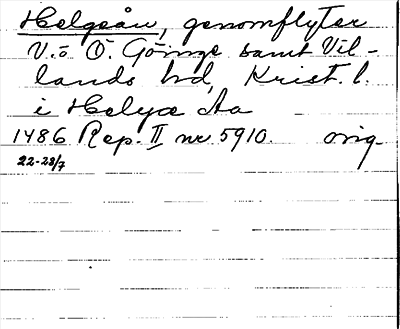 Helgeån, genomflyter
V. o. Ö. Göinge samt Vil-
lands hd, Krist. l.
i Helyæ Aa
1486 Rep. II nr 5910. orig.
22-23/7